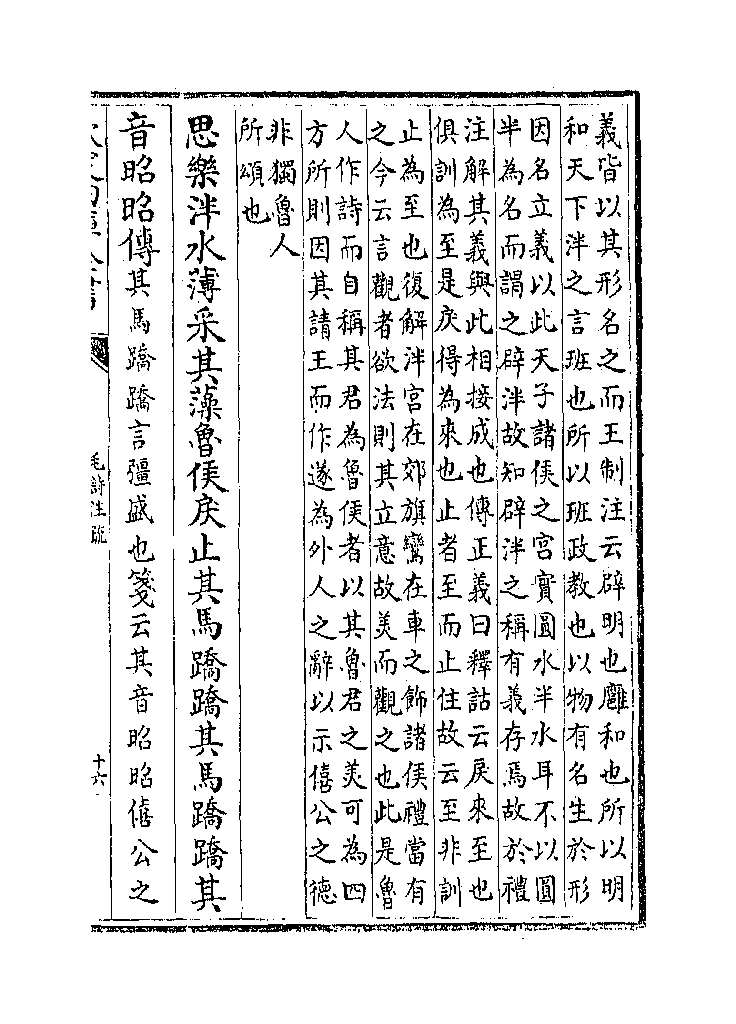 義皆以其形名之而王制注云辟明也廱和也所以明
和天下泮之言班也所以班政教也以物有名生於形
因名立義以此天子諸侯之宫實圓水半水耳不以圓
半為名而謂之辟泮故知辟泮之稱有義存焉故於禮
注解其義與此相接成也傳正義曰釋詁云戾來至也
俱訓為至是戾得為來也止者至而止住故云至非訓
止為至也復解泮宮在郊旗鸞在車之飾諸侯禮當有
之今云言觀者欲法則其立意故美而觀之也此是魯
人作詩而自稱其君為魯侯者以其魯君之美可為四
方所則因其請王而作遂為外人之辭以示僖公之德
非獨魯人
所頌也
思樂泮水薄采其藻魯侯戾止其馬蹻蹻其馬蹻蹻其
音昭昭傳其馬蹻蹻言彊盛也箋云其音昭昭僖公之
毛詩注疏
十六